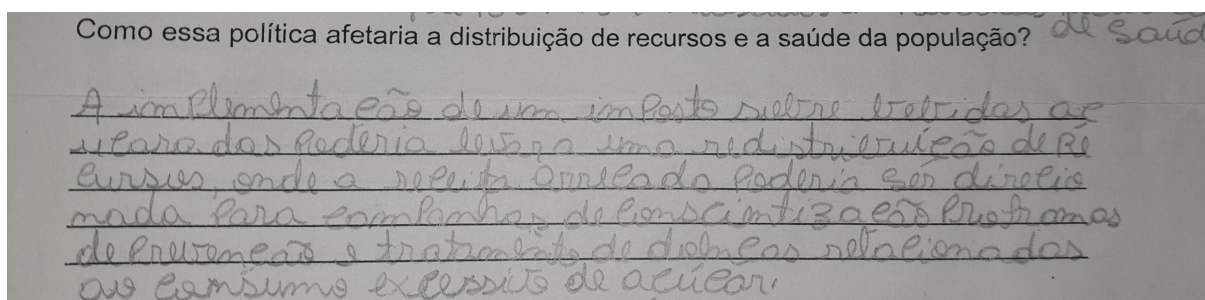 Como essa política afetaria a distribuição de recursos e a saúde da população? de saúd
A implementação de um imposto sobre bebidas aç
ucaradas poderia levar a uma redistribuição de re
cursos, onde a receita arrecada poderia ser direcio
nada para campanhas de conscientização programas
de prevenção e tratamento de doenças relacionadas
ao consumo excessivo de açúcar.